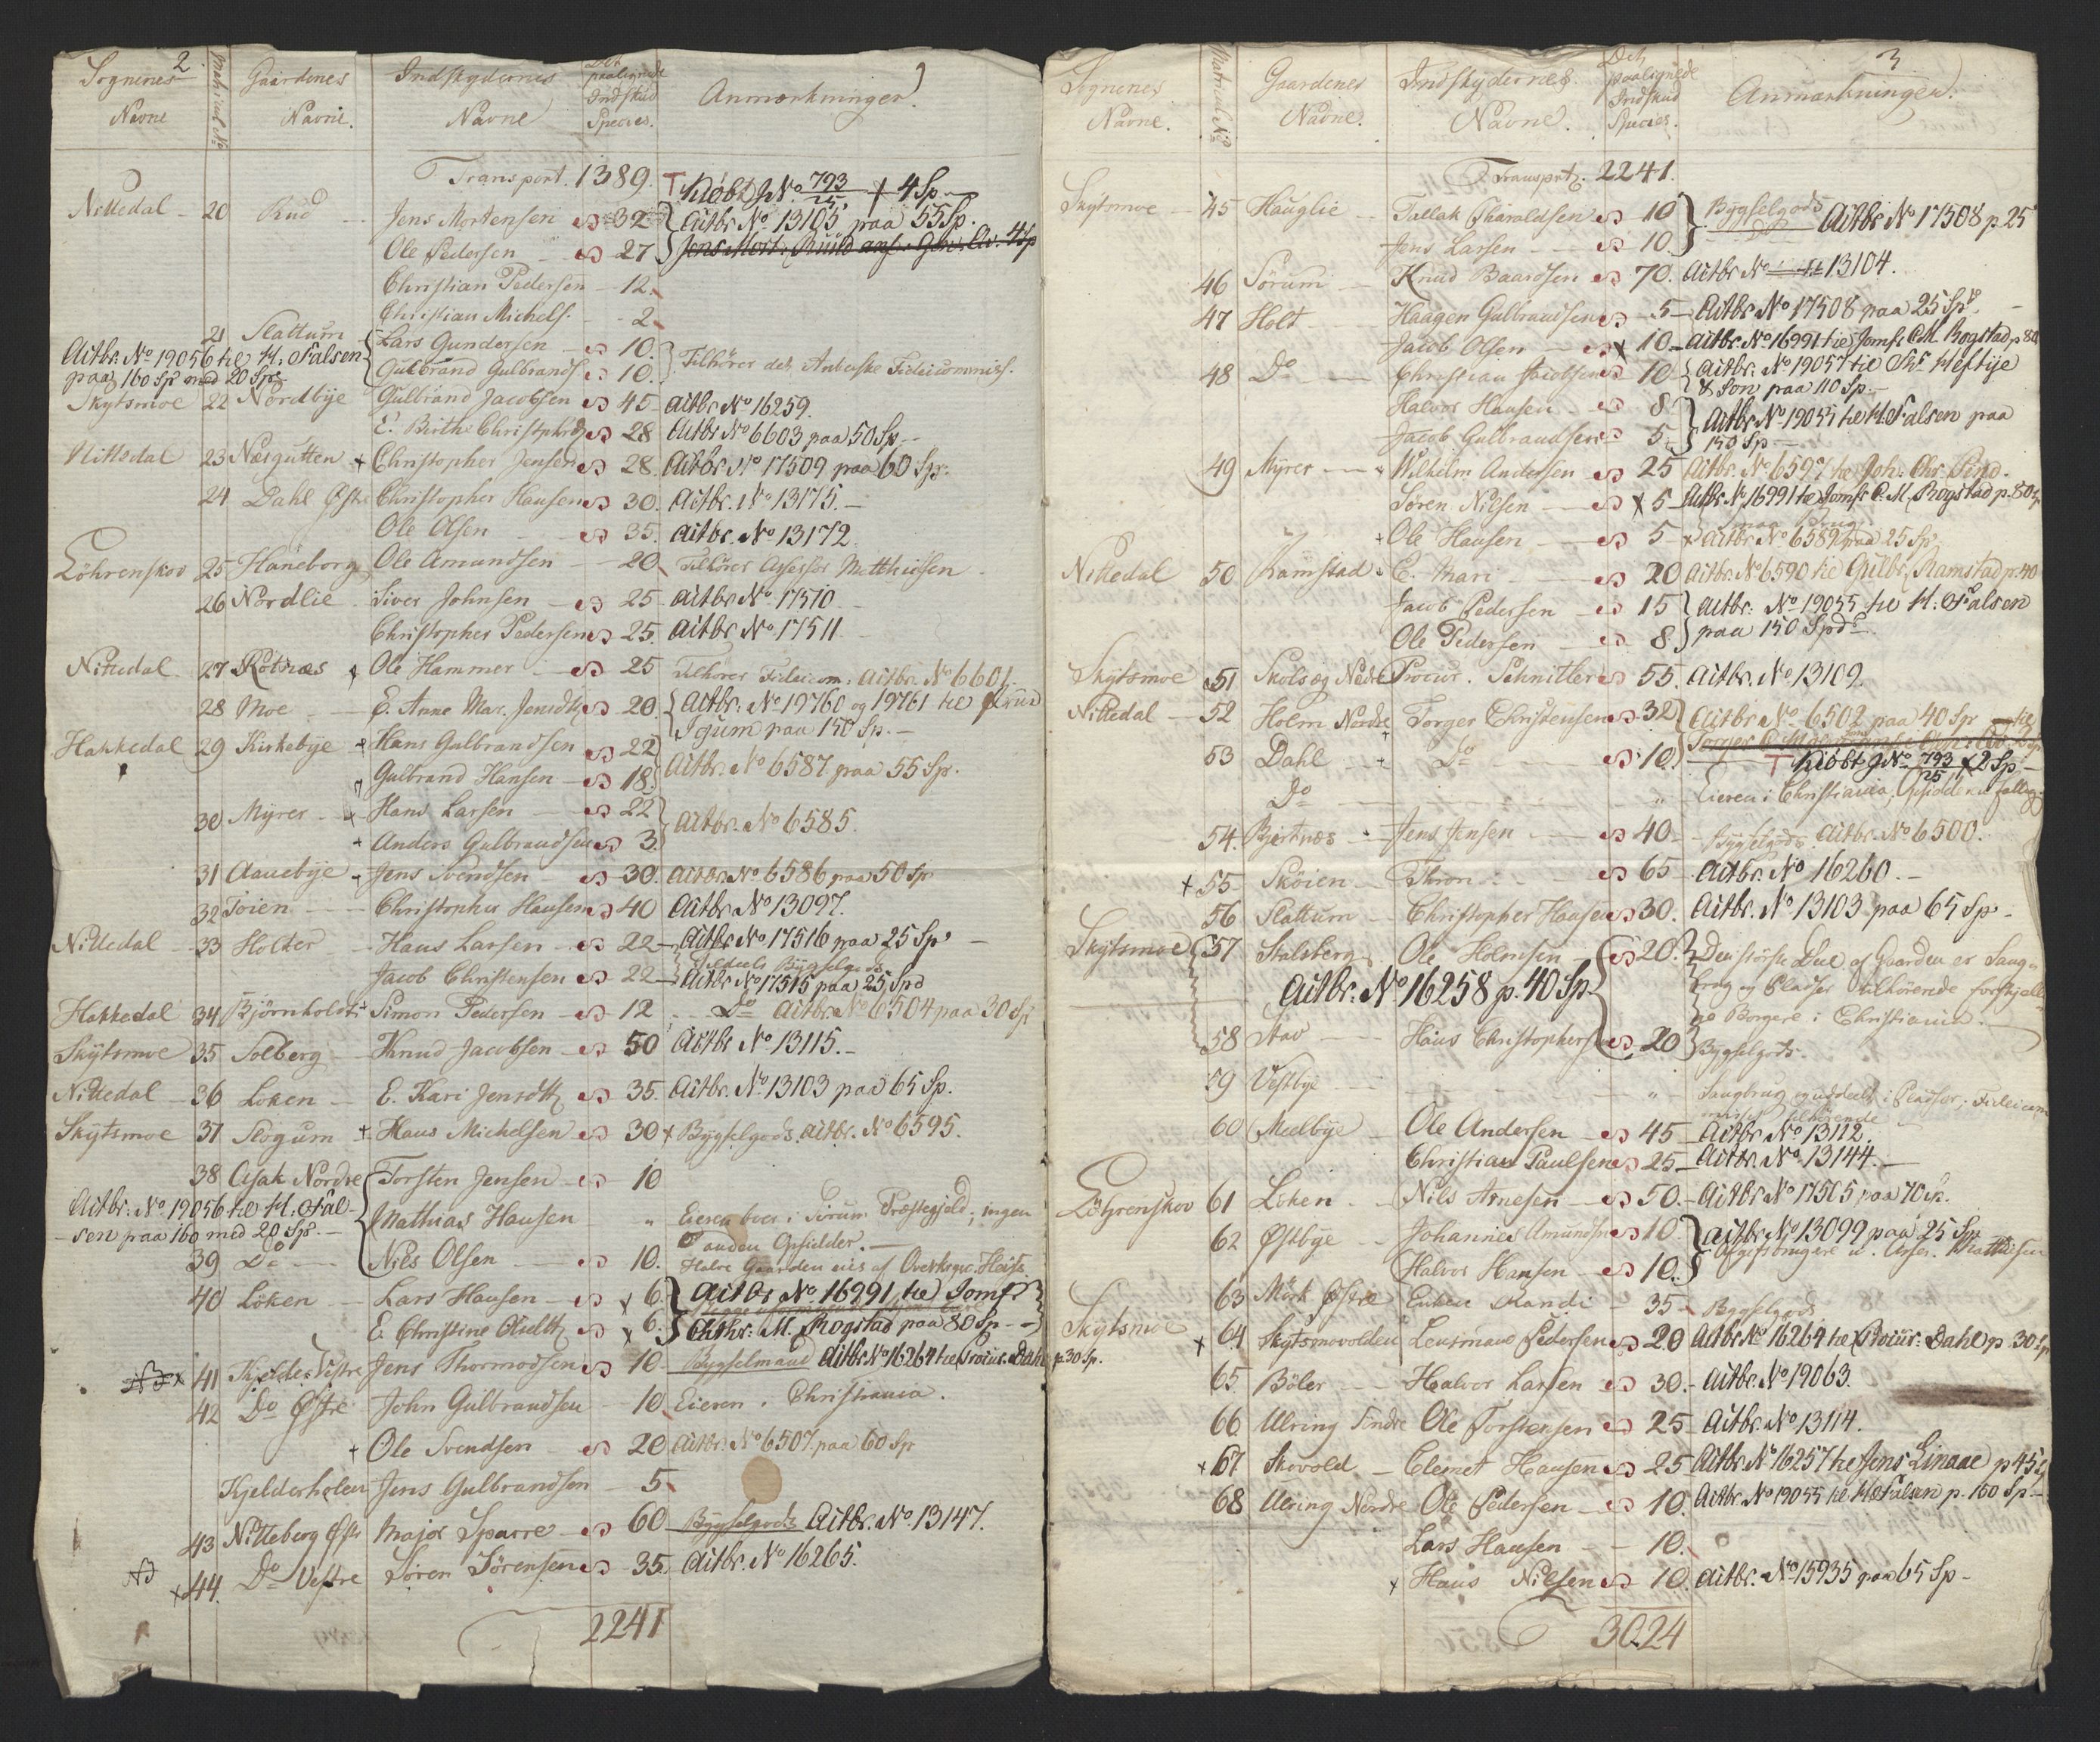 2.
Sognenes Navne | Matricul No | Gaardenes Navne. | Indskydernes Navne | Det paalignede Indskud Species. | Anmærkninger.
Transport. 1389. Kiöbt J No. 793/25, 4 Sp.
Nittedal - 20 Rud - Jens Mortensen 32 Aitbr. No. 13105 paa 55 Sp.
Ole Pedersen - 27
Christian Pedersen - 12.
Christian Michels. - 2
21 Slattum - Lars Gundersen 10.
Aitbr. No 19056 til H. Falsen
Gulbrand Gulbrands. 10. Tilhörer det Ankerske Fideicommis.
paa 160 Sp. med 20 Sp.
Skytsmoe 22 Nordbye Gulbrand Jacobsen 45 Aitbr. No 16259.
E. Birthe Christophrd. 28 Aitbr. No 6603 paa 50 Sp.
Nittedal 23 Næsgutten + Christopher Jensen 28 Aitbr. No 17509 paa 60 Sp.
24 Dahl Østre Christopher Hansen 30. Aitbr. No 13175.
Ole Olsen 35. Aitbr. No. 13172.
Löhrenskov 25 Haneborg Ole Amundsen - 20 Tilhörer Assessor Matthiesen
26 Nordlie. Siver Johnsen 25 Aitbr. No. 17510
Christopher Pedersen 25. Aitbr. No 17511.
Nittedal. 27 Rotnæs Ole Hammer 25 Tilhörer Fideicom: Aitbr. No 6601.
28 Moe - E. Anne Mar. Jensdtr. 20. Aitbr. No 19760 og 19761 til
paa 150 Sp.
Hakkedal 29 Kirkebye Hans Gulbrandsen 22
Gulbrand Hansen 18. Aitbr. No 6587 paa 55 Sp.
30 Myrer Hans Larsen 22
+ Anders Gulbrandsen 3. Aitbr. No 6585.
31 Aanebye Jens Svendsen 30. Aitbr. No 6586 paa 50 Sp
32 Toien - Christopher Hansen 40 Aitbr. No 13097.
Nittedal - 33 Holter - Hans Larsen 22 Aitbr. No 17516 paa 25 Sp.
Tildeels Bygselgods
Jacob Christensen 22 Aitbr. No 17515 paa 25 Spd
Hakkedal 34 Björnholdt Simon Pedersen 12 Do Aitbr. No 6504 paa 30 Sp
Skytsmoe 35 Solberg Knud Jacobsen 50 Aitbr No 13115.
Nittedal - 36 Loken - E. Kari Jensdtr 35. Aitbr. No. 13103 paa 65 Sp.
Skytsmoe 37 Slogum + Hans Michelsen 30 x Bygselgods. Aitbr. No 6595.
38 Asak Nordre Torsten Jensen 10
Aitbr. No. 19056 til H. Fal-
Mathias Hansen " Eieren boer i Sörum Præstegjeld; ingen
sen paa 160 med 20 Sp. anden Opsidder.
39 Do Nils Olsen 10. Halve Gaarden eies af
40 Löken - Lars Hansen x 6 Aitbr No 16991 til Jomfr.
E. Christine Olsdtr x 6. Chthr: M. Rogstad paa 80 Sp
x 41 Kjelder Vestre Jens Thormodsen 10 Bygselmand Aitbr No 16264 til Procur: Dahl p. 30 Sp.
42 Do Østre John Gulbrandsen - 10 Eieren i Christiania.
+ Ole Svendsen 20 Aitbr. No 6507 paa 60 Sp
Kjelderholen Jens Gulbrandsen - 5
43 Nitteberg Østr Major Sparre 60 Bygselgods Aitbr. No. 13147.
NB x 44. Do Vestre Sören Sörensen 35. Aitbr. No 16265.
2241
3
Sognenes Navne. | Matricul No | Gaardenes Navne. | Indskydernes Navne. | Det paalignede Indskud Species. | Anmærkninger.
Transport. 2241.
Skytsmoe - 45 Hauglie - Tallak Haraldsen 10 Bygselgods Aitbr No 17508 p. 25
Jens Larsen 10.
46 Sörum - Knud Baardsen 70. Aitbr No 13104.
47 Holt Haagen Gulbrandsen 5 Aitbr. No 17508 paa 25 Sp.
Jacob Olsen x 10 Aitbr. No 16991 til Jomfr. C M. Rogstad p 80
48 Do Christian Jacobsen 10 Aitbr. No 19057 til Th. Heftye
& Son paa 110 Sp.
Halvor Hansen 8. Aitbr No 19055 til H. Falsen paa
Jacob Gulbrandsen 5. 150 Sp
49 Myrer Wilhelm Andersen 25 Aitbr. No 6597 til Joh: Chr.
Sören Nilsen x 5 Aitbr. No 16991 til Jomfr C. M. Rogstad p. 80
Ole Hansen 5 x Aitbr. No 6589 paa 25 Sp.
Nittedal 50 Ramstad E. Mari 20 Aitbr. No 6590 til Gulbr. Ramstad p. 40
Jacob Pedersen 15 Aitbr: No 19055 til H: Falsen
Ole Pedersen 8. paa 150 Spd.
Skytsmoe 51 Skolseg Nedre Procur. Schnitler 55. Aitbr. No. 13109.
Nittedal - 52 Holm Nordre Torger Christensen 32 Aitbr. No. 6502 paa 40 Sp
53 Dahl Do 10. Kiöbt J No. 793/25 2 Sp.
Do " Eieren i Christiania,
54. Bjertnæs Jens Jensen 40 Bygselgods. Aitbr. No 6500.
+ 55 Sköien Thron 65 Aitbr. No 16260.
56 Slattum - Christopher Hansen 30. Aitbr. No 13103 paa 65 Sp.
Skytsmoe 57 Stalsberg Ole Holmsen 20. Den störste Deel af Gaarden er Saug-
Aitbr: No 16258 p. 40 Sp. brug og Pladser tilhörende forskjelli-
ge Borgere i Christiania.
58 Stav Hans Christophersen 20 Bygselgods.
59 Vestbye " Saugbrug, uddeelt i Pladser; Fideicom
tilhörende
60 Melbye Ole Andersen 45 Aitbr. No. 13112.
Christian Paulsen 25 Aitbr. No. 13144.
Löhrenskov 61 Löken. - Nils Arnesen 50. Aitbr. No 17505 paa 70 sp.
62 Østbye Johannes Amundsen 10 Aitbr. No 13099 paa 25 Sp
Halvor Hansen 10. Matthiesen
63 Mörk Østre Enken Randi 35 Bygselgods
Skytsmoe x 64 Skytsmovolden Lensmand Pedersen 20 Aitbr. No 16264 til Procur: Dahl p. 30 Sp
65 Böler Halvor Larsen 30. Aitbr. No 19063.
66 Ulring Söndre Ole Torstensen 25 Aitbr. No 13114.
x 67 Skovold - Clemet Hansen 25 Aitbr No 16257 til Jens Linaae p 45
68 Ulring Nordre Ole Pedersen 10. Aitbr. No 19055 til H. Falsen p. 150 Sp
Lars Hansen 10.
x Hans Nilsen 10. Aitbr. No 15935 paa 65 Sp
3024